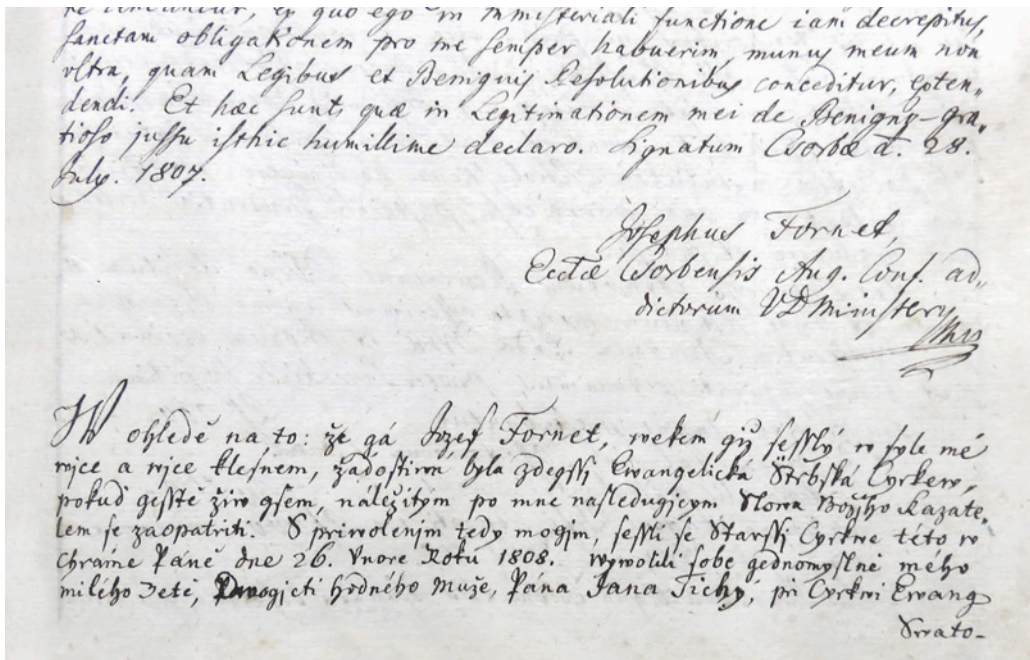 ex quo ego in ministeriali functione iam decrepitus,
sanctam obligationem pro me semper habuerim, munus meum non
ultra, quam Legibus et Benignis Resolutionibus conceditur, exten„
dendi. Et hæc sunt, quæ in Legitimationem mei de Benigno-gra„
tioso jussu isthic humillime declaro. Signatum Csorbæ d. 28.
July. 1807.
Josephus Fornet,
Ecclæ Csorbensis Aug. Conf. ad„
dictorum VDMinistery
W ohledě na to: že gá Jozef Fornet, wekem giž sesslý w syle mé
wjce a wjce klesnem, žádostiwá byla zdegssj Ewangelická Strbská Cyrkew,
pokud gesstě žiw gsem, náležitým po mne následugjcym Slowa Božjho Kazate„
lem se zaopatřiti. S priwolenjm tedy mogjm, sessli se Starssj Cyrkwe této w
chráme Páně dne 26. Unore Roku 1808. wywolili sobe gednomyslně mého
milého Zetě, Dwogjcti hodného Muže, Pána Jana Tichý, při Cyrkwi Ewang
Swato-